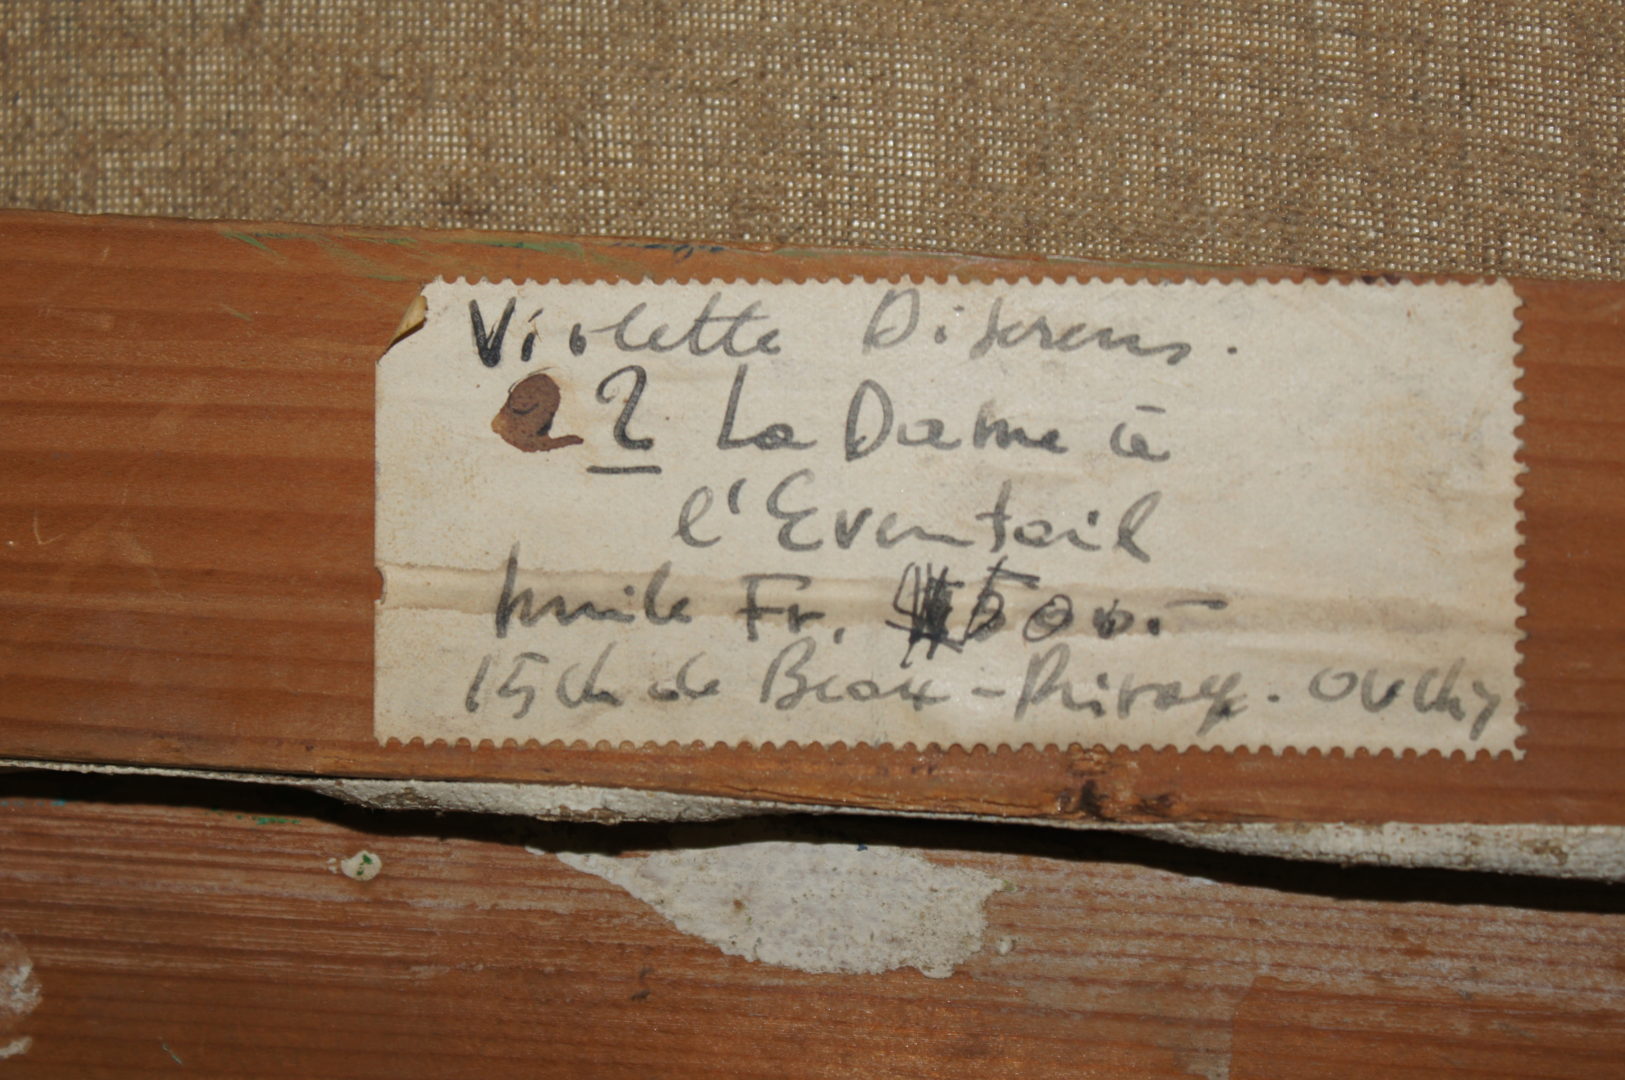 Violette Diserens.
22 La Dame à
l'Eventail
huile Fr. 500.-
15 ch de Beau-Rivage. Ouchy